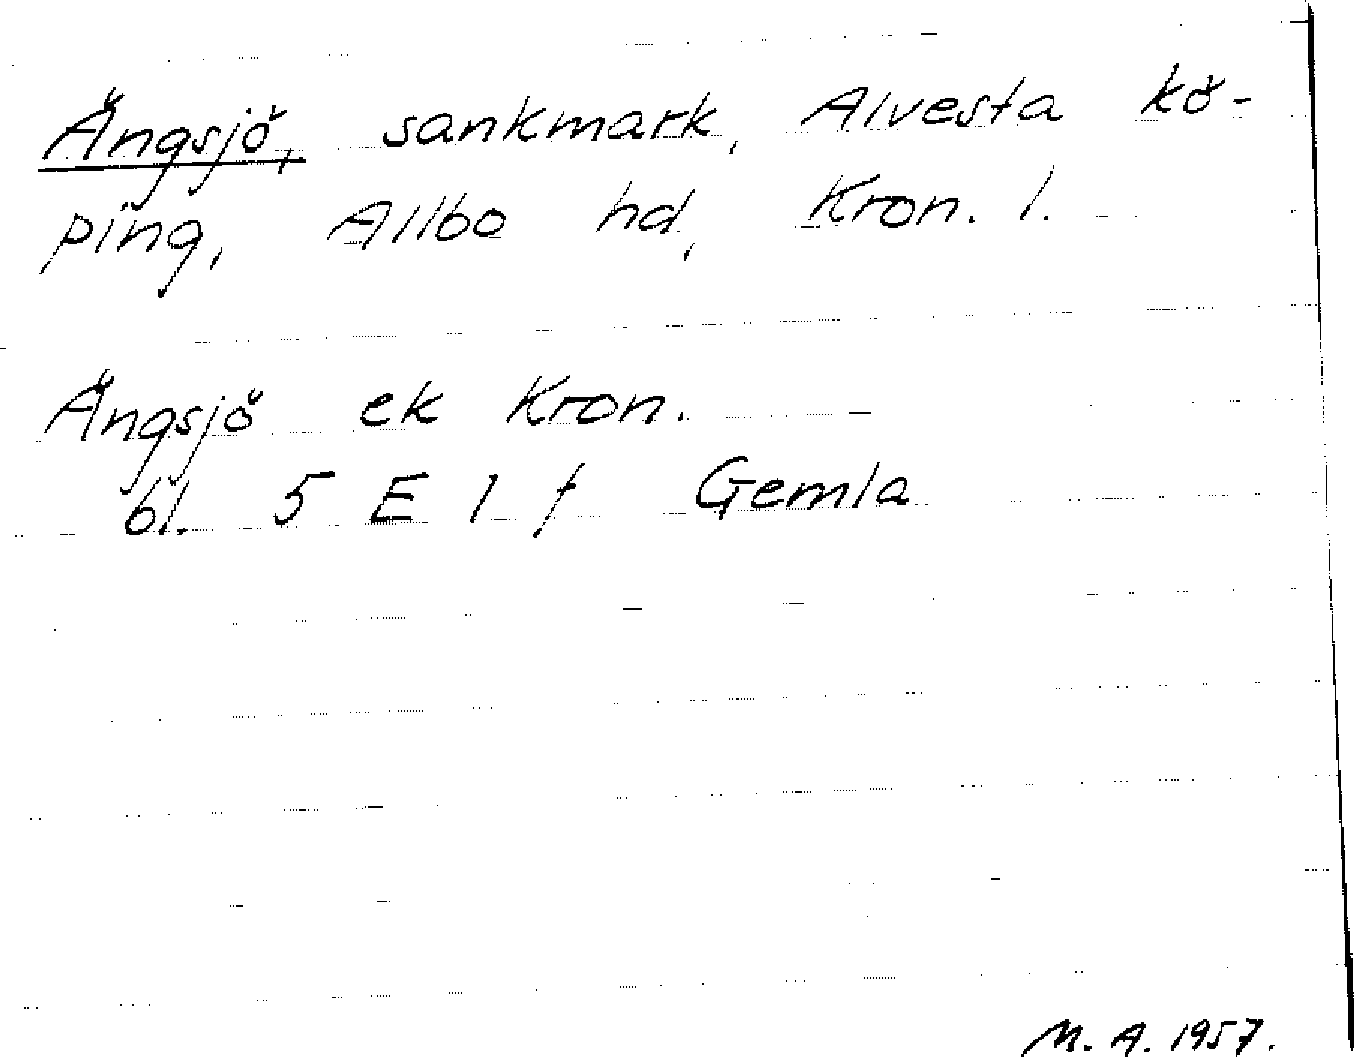 Ängsjö, sankmark, Alvesta kö-
ping, Allbo hd, Kron. l.
Ängsjö ek Kron.
bl. 5 E 1 f Gemla
M. A. 1957.